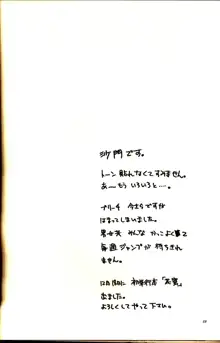 沙門です。
トーン 貼れなくてすみません。
あーもう いろいろと…。
ブリーチ 今さらですが
はまってしまいました。
男も女も みんな かっこよく
毎週 ジャンプが 待ちきれ
ません。
12月 初単行本
出ました。
よろしくして やって 下さい。